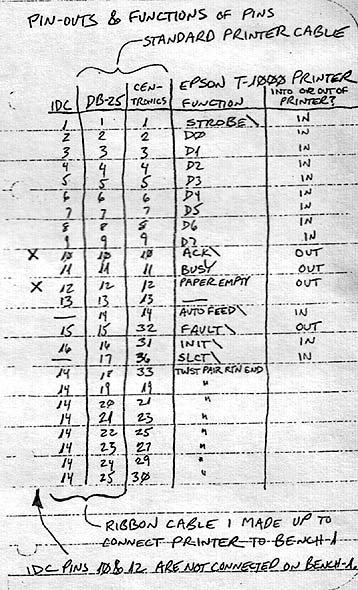 PIN-OUTS & FUNCTIONS OF PINS
STANDARD PRINTER CABLE
IDC DB-25 CEN-TRONICS EPSON T-1000 PRINTER FUNCTION INTO OR OUT OF PRINTER?
1 1 1 STROBE\ IN
2 2 2 D0 IN
3 3 3 D1 IN
4 4 4 D2 IN
5 5 5 D3 IN
6 6 6 D4 IN
7 7 7 D5 IN
8 8 8 D6 IN
9 9 9 D7 IN
X 10 10 10 ACK\ OUT
11 11 11 BUSY OUT
X 12 12 12 PAPER EMPTY OUT
13 13 13 —
— 14 14 AUTO FEED\ IN
15 15 32 FAULT\ OUT
16 16 31 INIT\ IN
— 17 36 SLCT\ IN
14 18 33 TWST PAIR RTN END
14 19 19 "
14 20 21 "
14 21 23 "
14 22 25 "
14 23 27 "
14 24 29 "
14 25 30 "
RIBBON CABLE I MADE UP TO
CONNECT PRINTER TO BENCH-1
IDC PINS 10 & 12 ARE NOT CONNECTED ON BENCH-1.